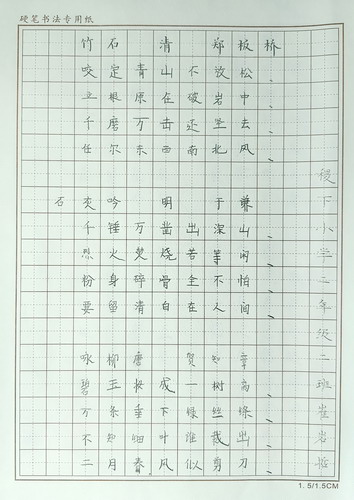 硬笔书法专用纸
竹石 清 郑板桥、
咬定青山不放松、
立根原在破岩中、
千磨万击还坚去、
任尔东西南北风、
石灰吟 明 于谦
千锤万凿出深山、
烈火焚烧若等闲、
粉身碎骨全不怕、
要留清白在人间、
咏柳 唐 贺知章
碧玉妆成一树高、
万条垂下绿丝绦、
不知细叶谁裁出、
二月春风似剪刀、
稷下小学二年级二班崔岩
1.5/1.5CM